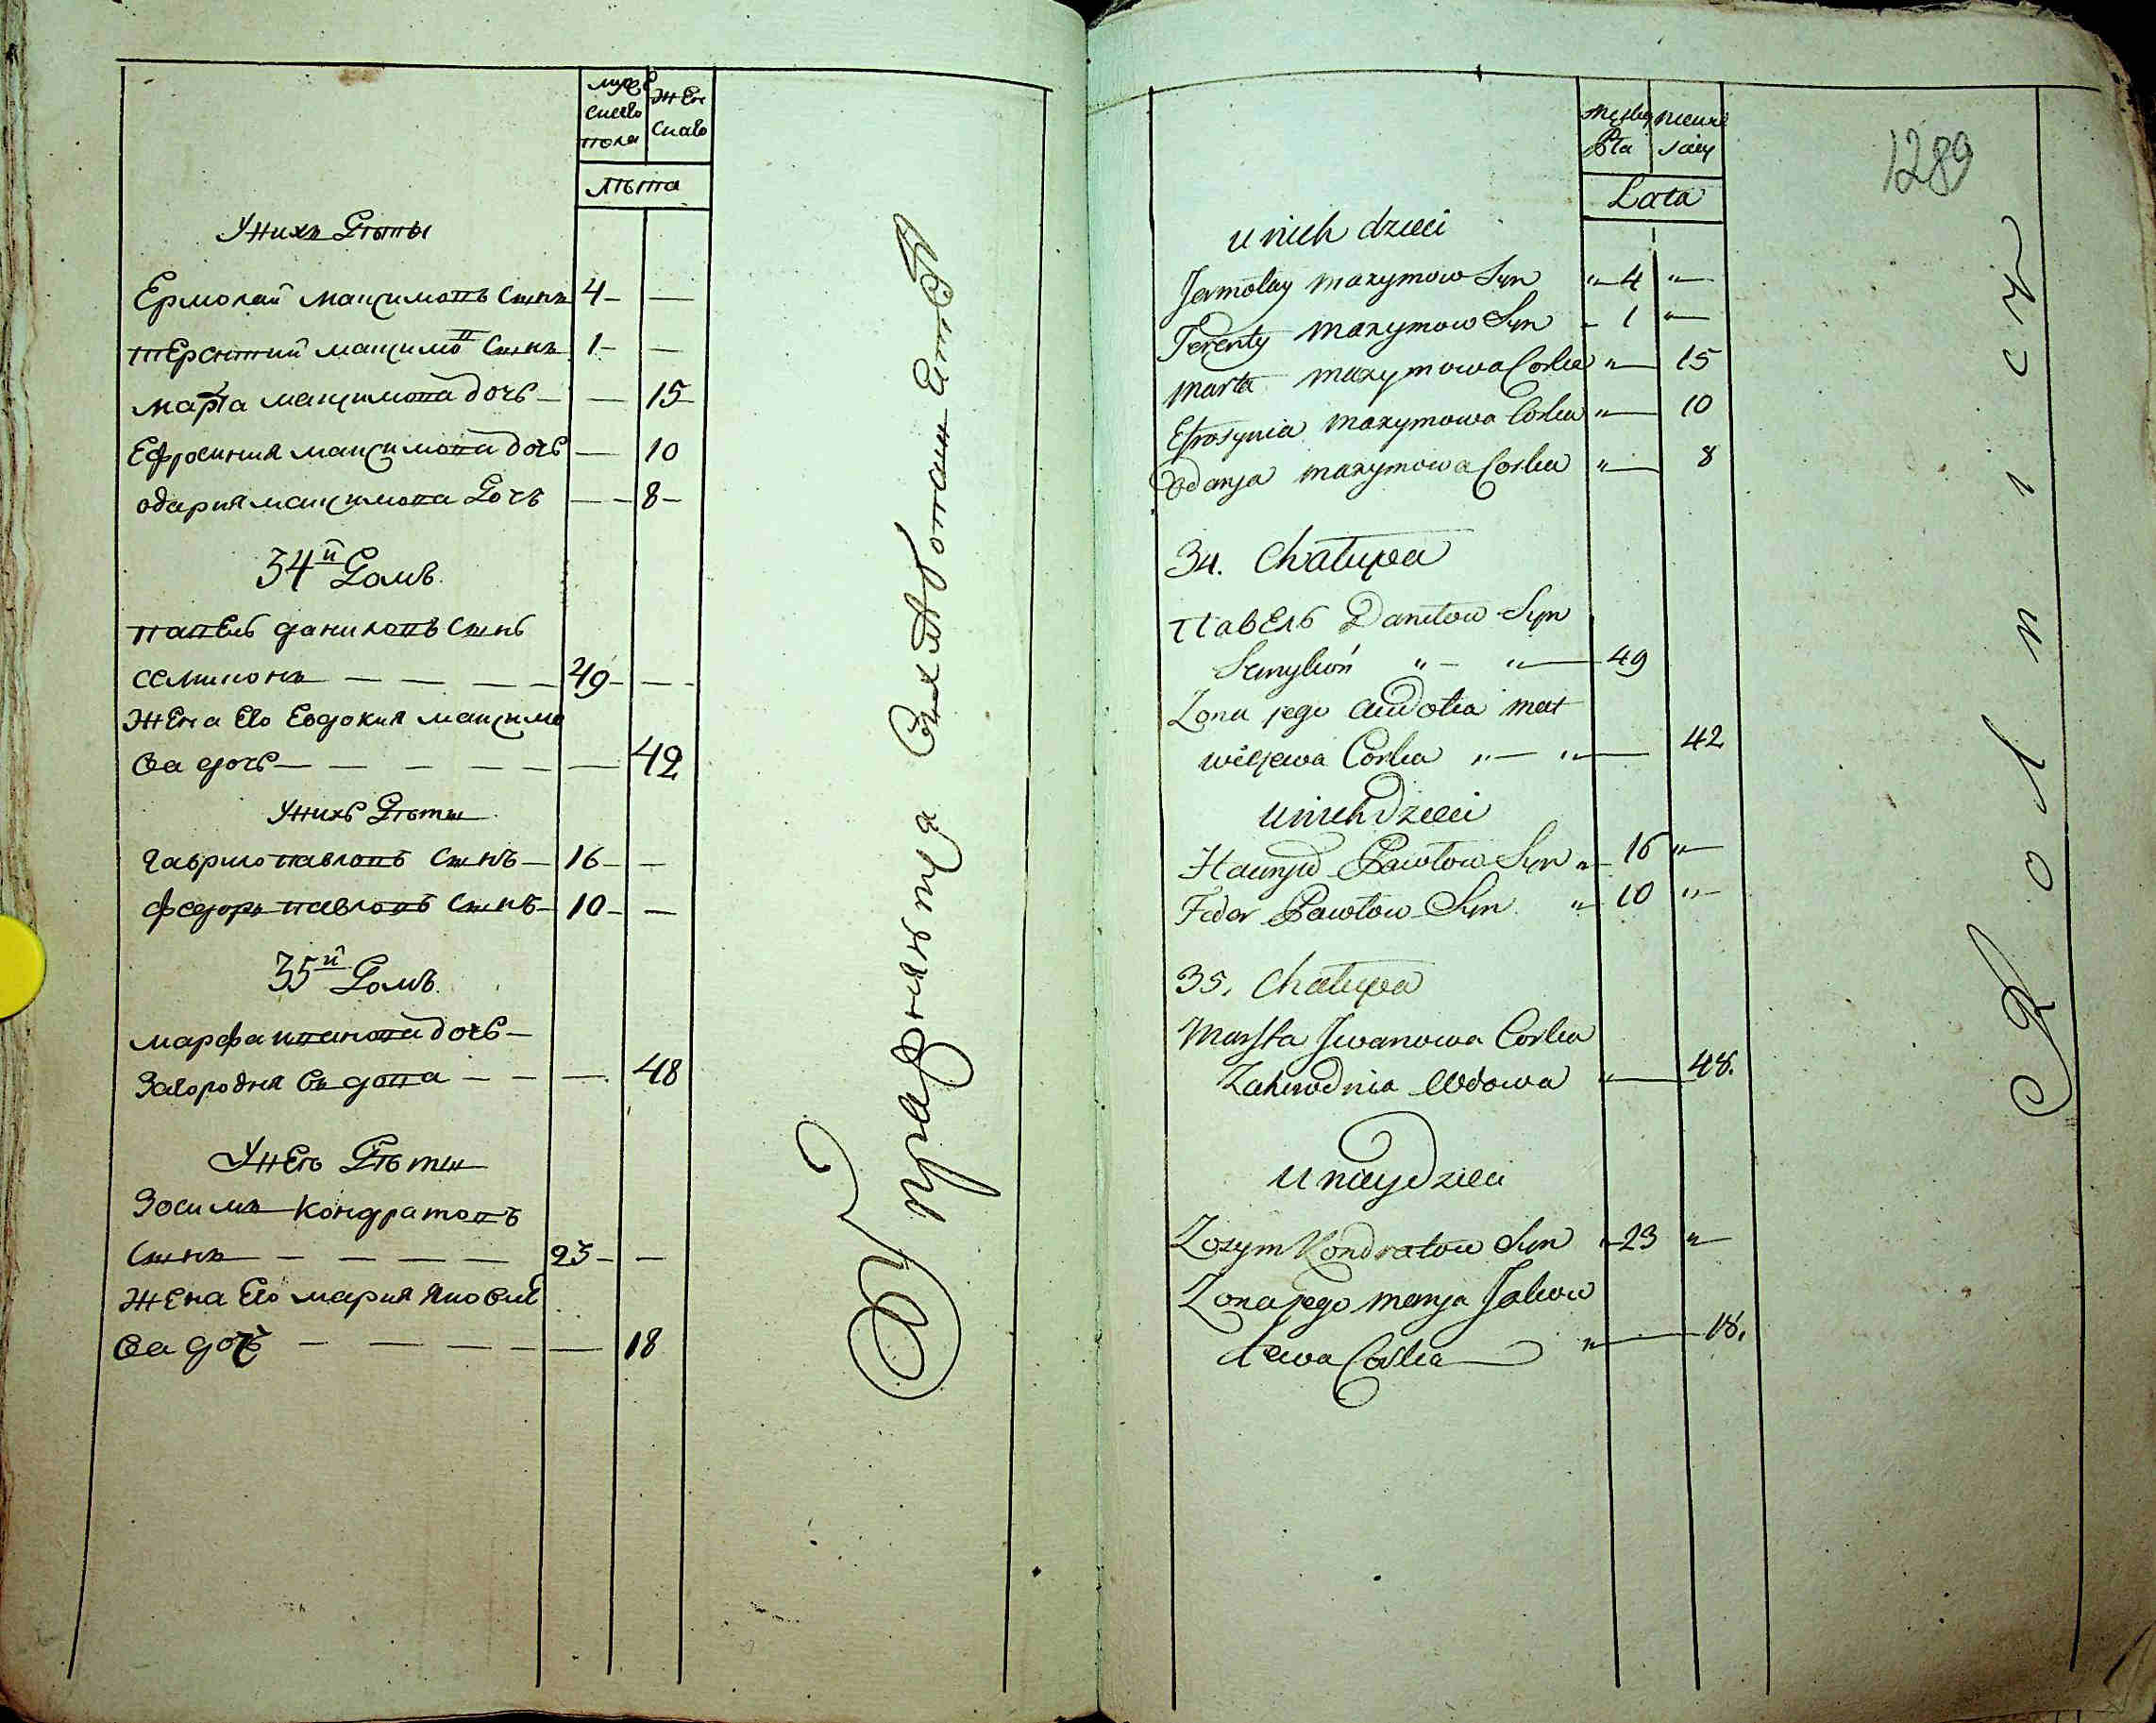 муже
скаго
пола
Жен
скаго
лѣта
У нихъ Дѣты
Ермолай максимовъ сынъ 4 — —
терентий максимов сынъ 1 — —
марѳа максимова дочь — — 15
Ефросиния максимова дочь — 10
одария максимова дочь — — 8 —
34й Домъ.
павелъ даниловъ сынъ
семиконъ — — — — 49 — —
жена Его Евдокия максимо
ва дочь — — — — — 42
У нихъ Дѣти
гаврило павловъ сынъ — 16 — —
федоръ павловъ сынъ — 10 — —
35й Домъ.
марфа иванова дочь —
Загородня вдова — — — 48
У неѣ Дѣти
Зосимъ Кондратовъ
сынъ — — — — — 23 — —
Жена Его мария яковле
ва дочь — — — — — 18
Męskiey
Płci
Lata
1289
u nich dzieci
Jermołay maxymow Syn „ 4 „
Terenty maxymow Syn — 1 „
marta maxymowa Corka „ — 15
Efrosynia maxymowa Corka „ — 10
Odarya maxymowa Corka „ — 8
34. Chałupa
Павель Daniłow Syn
Semykoń „ — „ — 49
Zona jego Awdotia mat
wiejewa Corka „ — „ — 42
u nich Dzieci
Hawryło Pawłow Syn „ 16 „
Fedor Pawłow Syn „ 10 „
35. Chałupa
Marfta Jwanowa Corka
Zahorodnia Wdowa „ — 48.
u niey Dzieci
Zosym Kondratow Syn „ 23 „
Zona jego marya Jakow
lewa Corka „ — 18.
Rolnicy